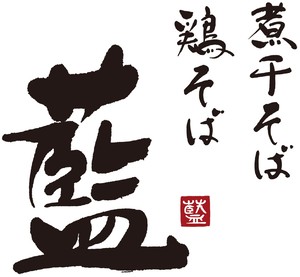 煮干そば
鶏そば
藍
藍